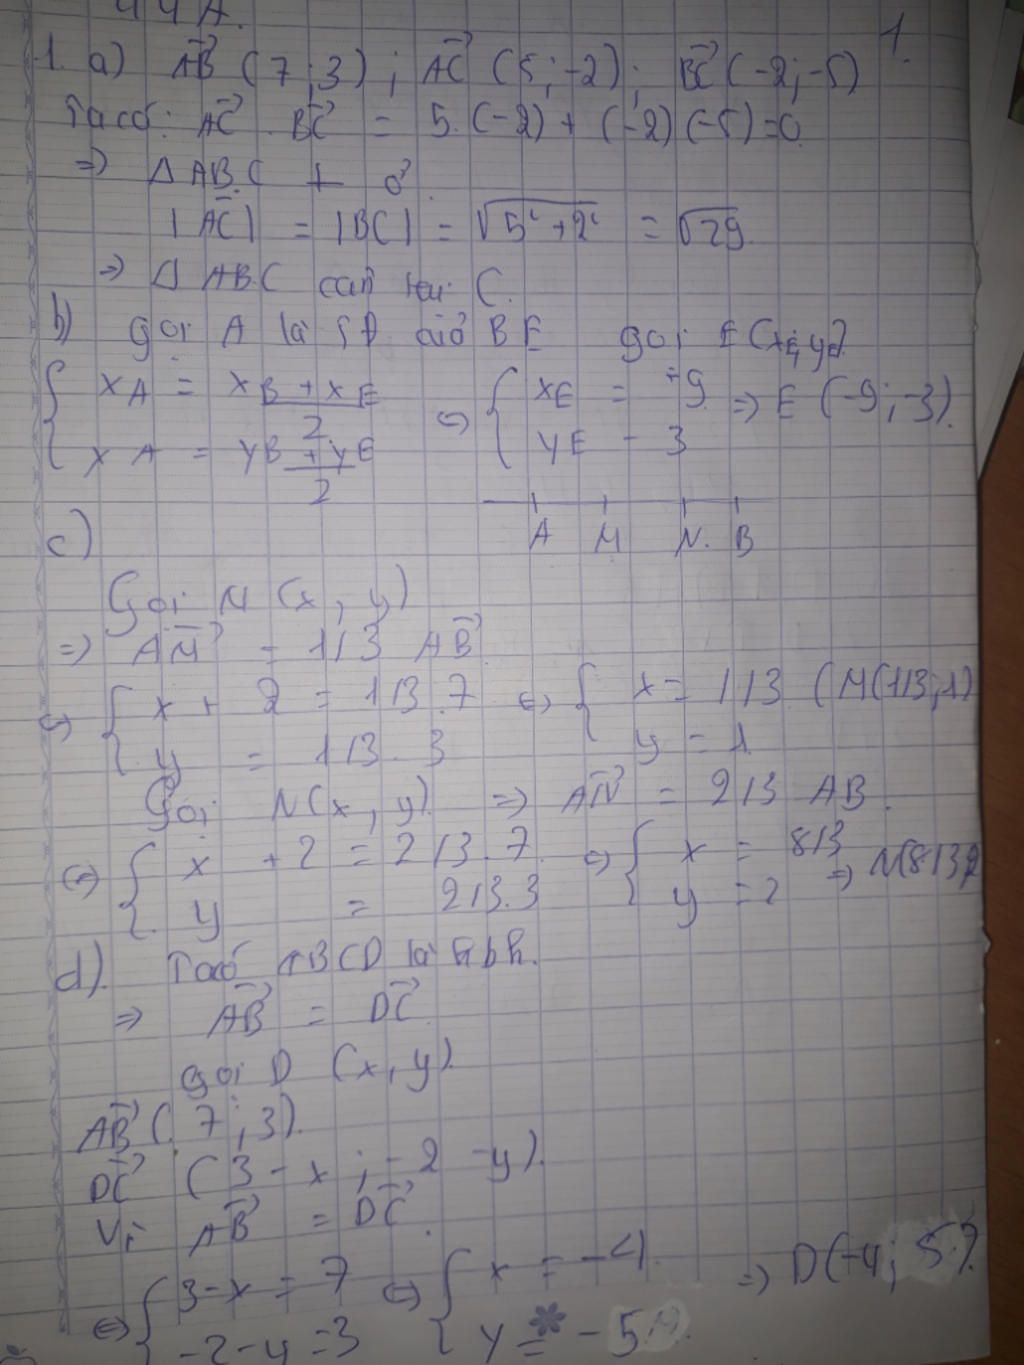 44A.
1.
1. a) AB (7;3) ; AC (5;-2) ; BC (-2;-5)
Ta có: AC . BC = 5.(-2) + (-2)(-5)=0
=> Δ ABC ⊥ ở
|AC| = |BC| = √5²+2² = √29
=> Δ ABC cân tại C.
b) gọi A là TĐ của BE gọi E(xE;yE)
{ xA = xB + xE / 2 <=> { xE = -9 => E (-9;-3).
{ xA = yB + yE / 2 { yE - 3
A M N. B
c)
Gọi M (x, y)
=> AM = 1/3 AB
<=> { x + 2 = 1/3.7 <=> { x = 1/3 (M(1/3;1)
{ y = 1/3.3 { y = 1
Gọi N(x, y) => AN = 2/3 AB.
<=> { x + 2 = 2/3.7 <=> { x = 8/3 => N(8/3;2
{ y = 2/3.3 { y = 2
d). Ta có ABCD là hbh.
=> AB = DC
gọi D (x,y).
AB (7;3).
DC (3-x;-2-y).
Vì AB = DC.
<=> { 3-x = 7 <=> { x = -4 => D(-4;5).
{ -2-y=3 { y = -5